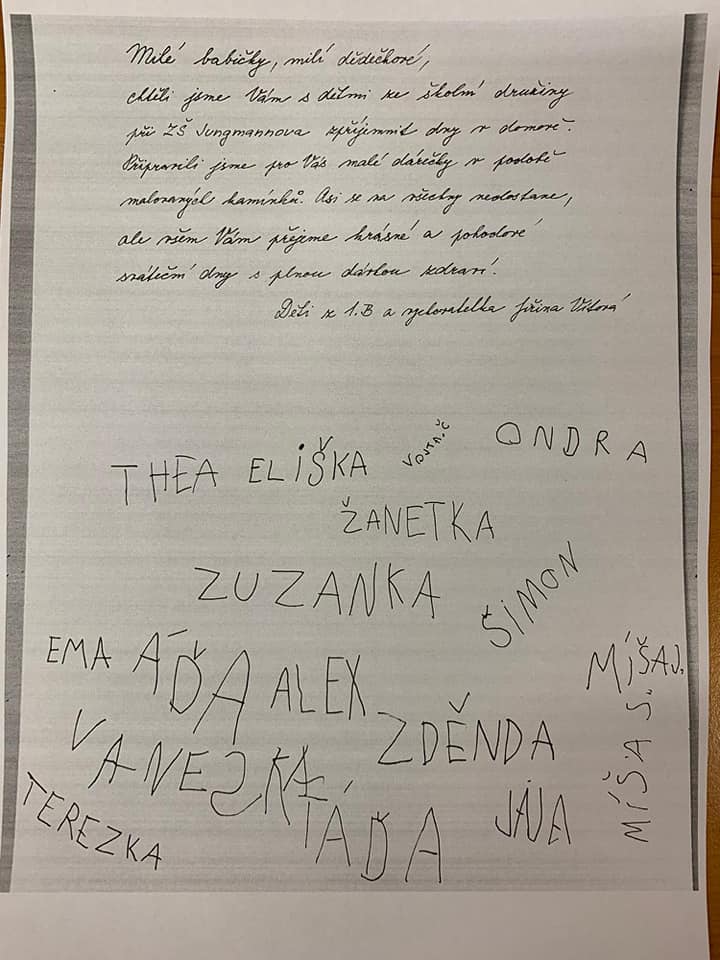 Milé babičky, milí dědečkové,
chtěli jsme Vám s dětmi ze školní družiny
při ZŠ Jungmannova zpříjemnit dny v domově.
Připravili jsme pro Vás malé dárečky v podobě
malovaných kamínků. Asi se na všechny nedostane,
ale všem Vám přejeme krásné a pohodové
sváteční dny s plnou dávkou zdraví.
Děti z 1.B a vychovatelka Jiřina Vítová
ONDRA
THEA ELIŠKA
ŽANETKA
ZUZANKA
ŠIMON
EMA ÁĎA ALEX
MÍŠA J.
ZDĚNDA
VANESKA
MÍŠA S.
TEREZKA
TÁĎA
JÁJA